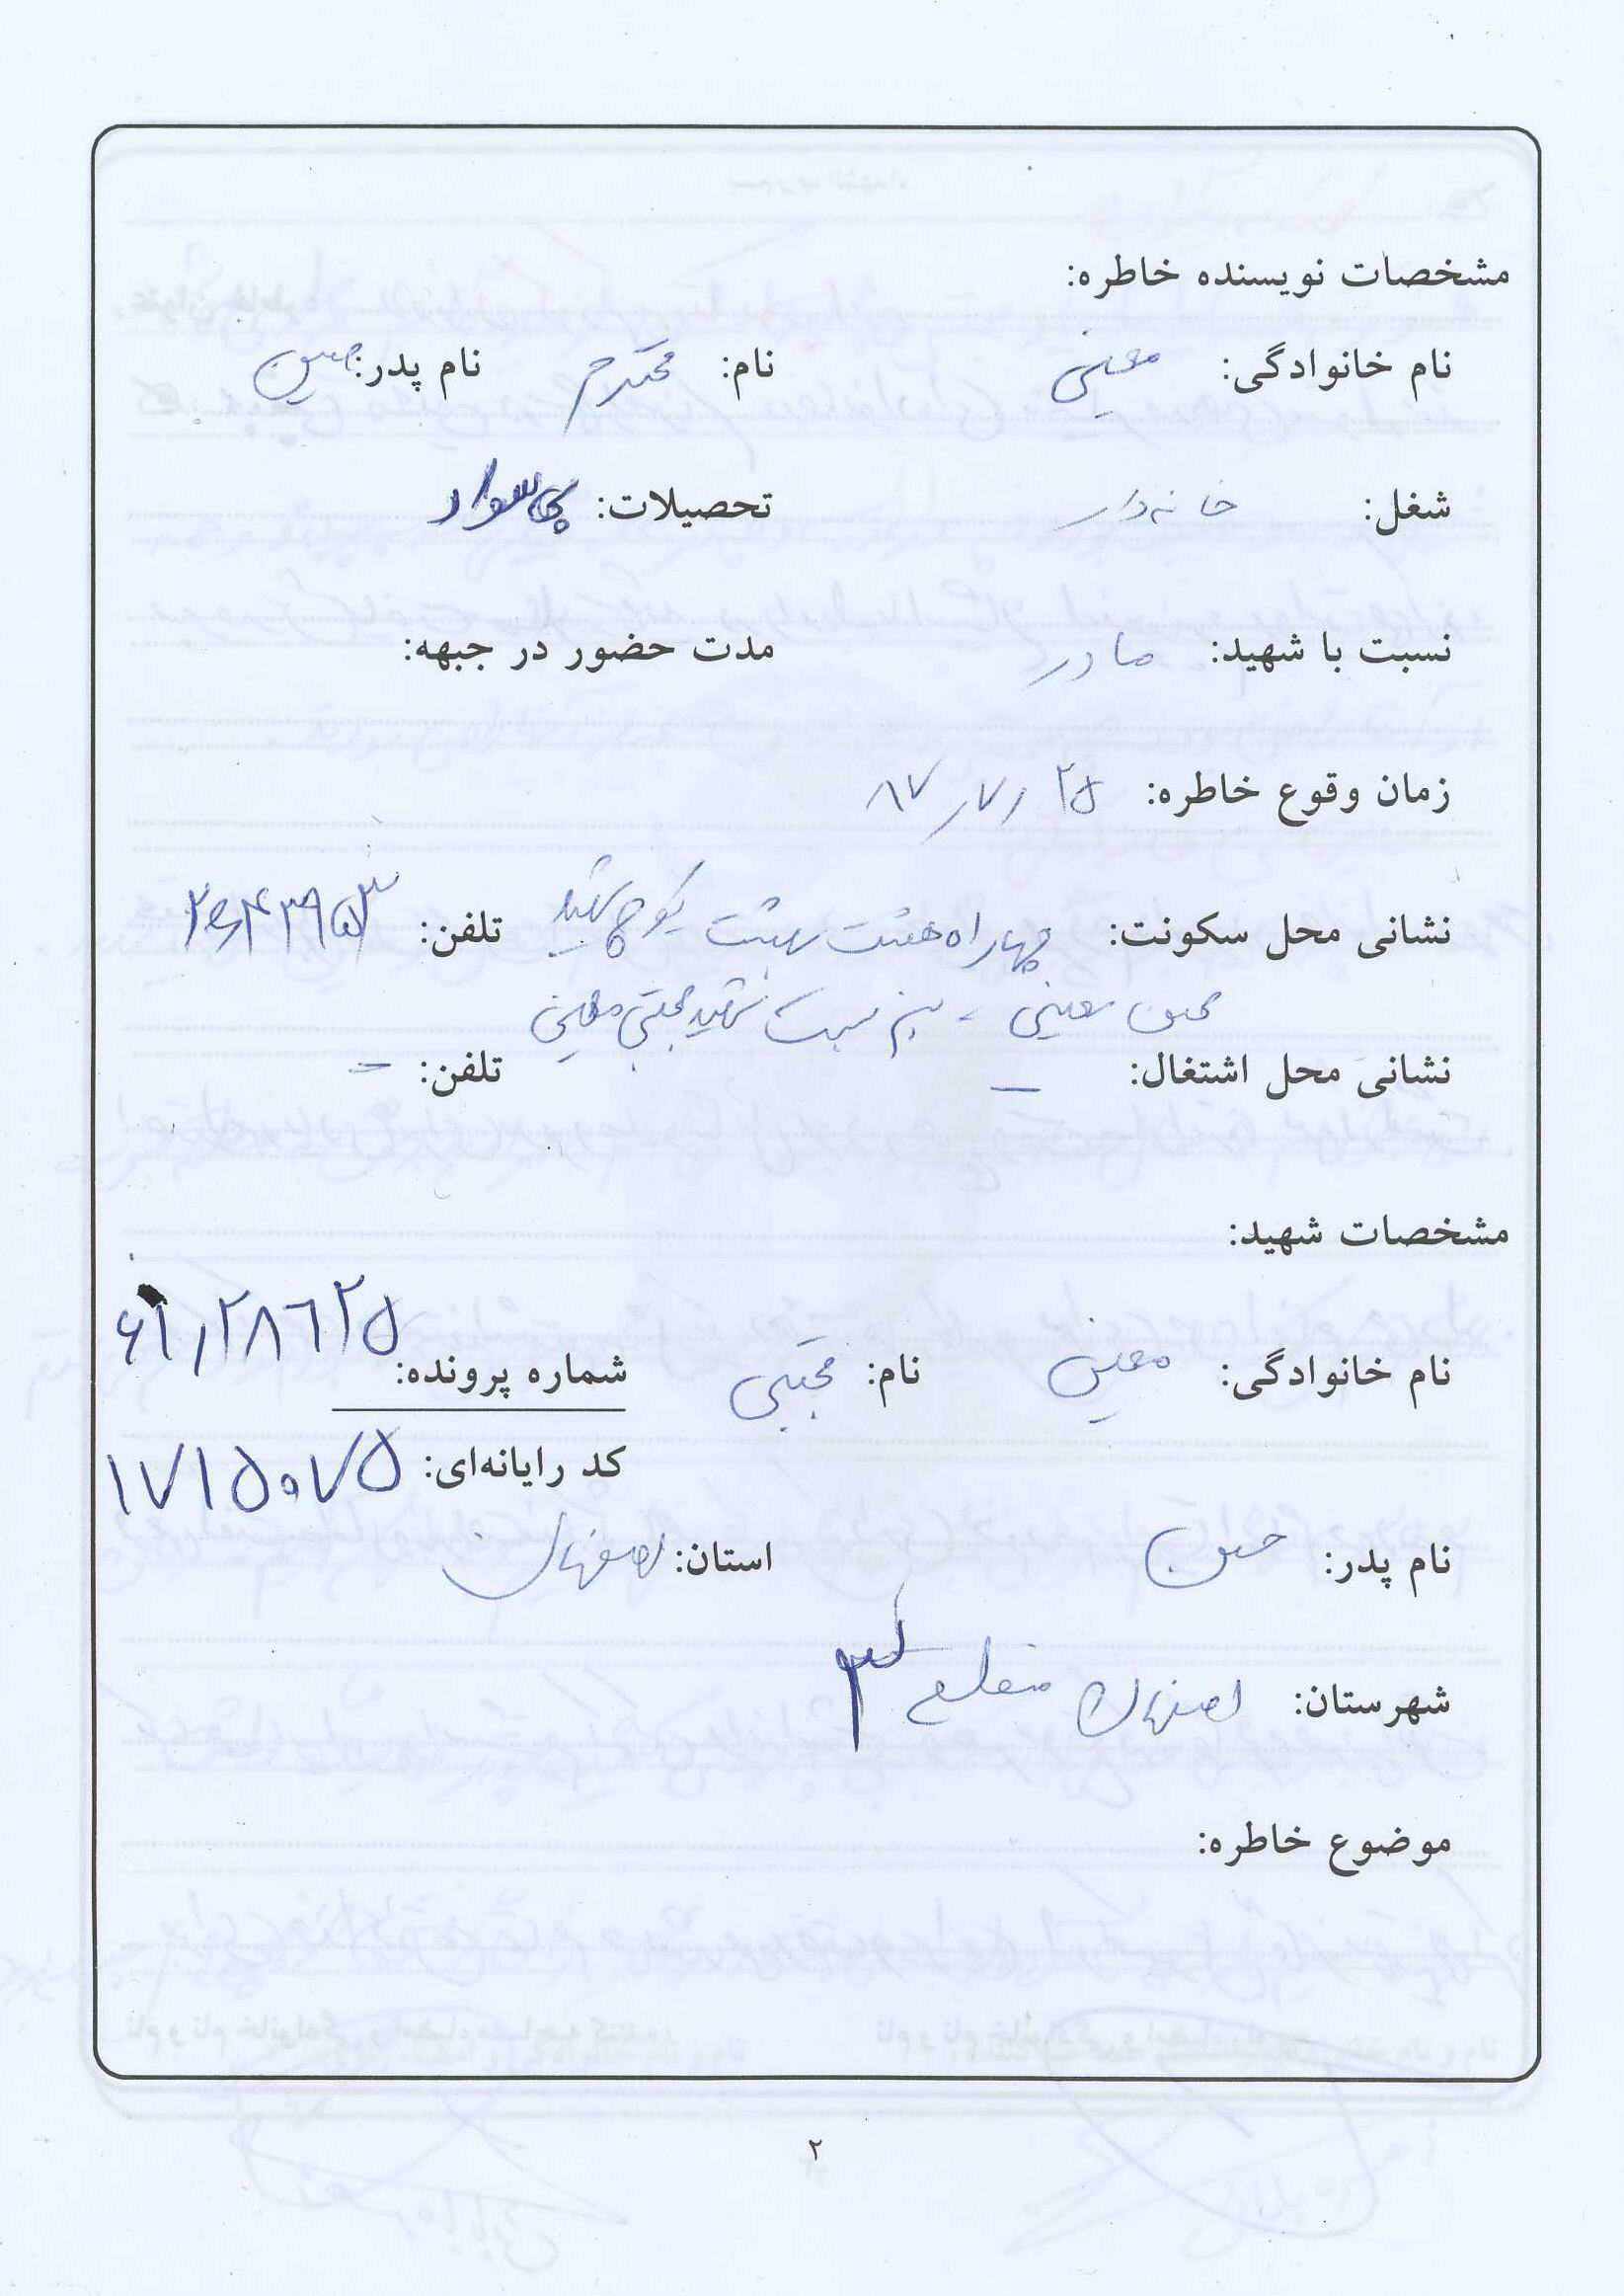 مشخصات نویسنده خاطره:
نام خانوادگی: معینی نام: محترم نام پدر: حسن
شغل: خانه‌دار تحصیلات: بی سواد
نسبت با شهید: مادر مدت حضور در جبهه:
زمان وقوع خاطره: ۲۵ / ۷ / ۸۷
نشانی محل سکونت: چهارراه هشت بهشت کوچه شهید تلفن: ۲۶۴۳۹۵۳
معینی - بن بست شهید مجتبی معینی
نشانی محل اشتغال: — تلفن: —
مشخصات شهید:
نام خانوادگی: معینی نام: مجتبی شماره پرونده: ۶۱/۲۸۶۲۵
کد رایانه‌ای: ۱۷۱۵۰۷۵
نام پدر: حسن استان: اصفهان
شهرستان: اصفهان منطقه ۳
موضوع خاطره:
۲